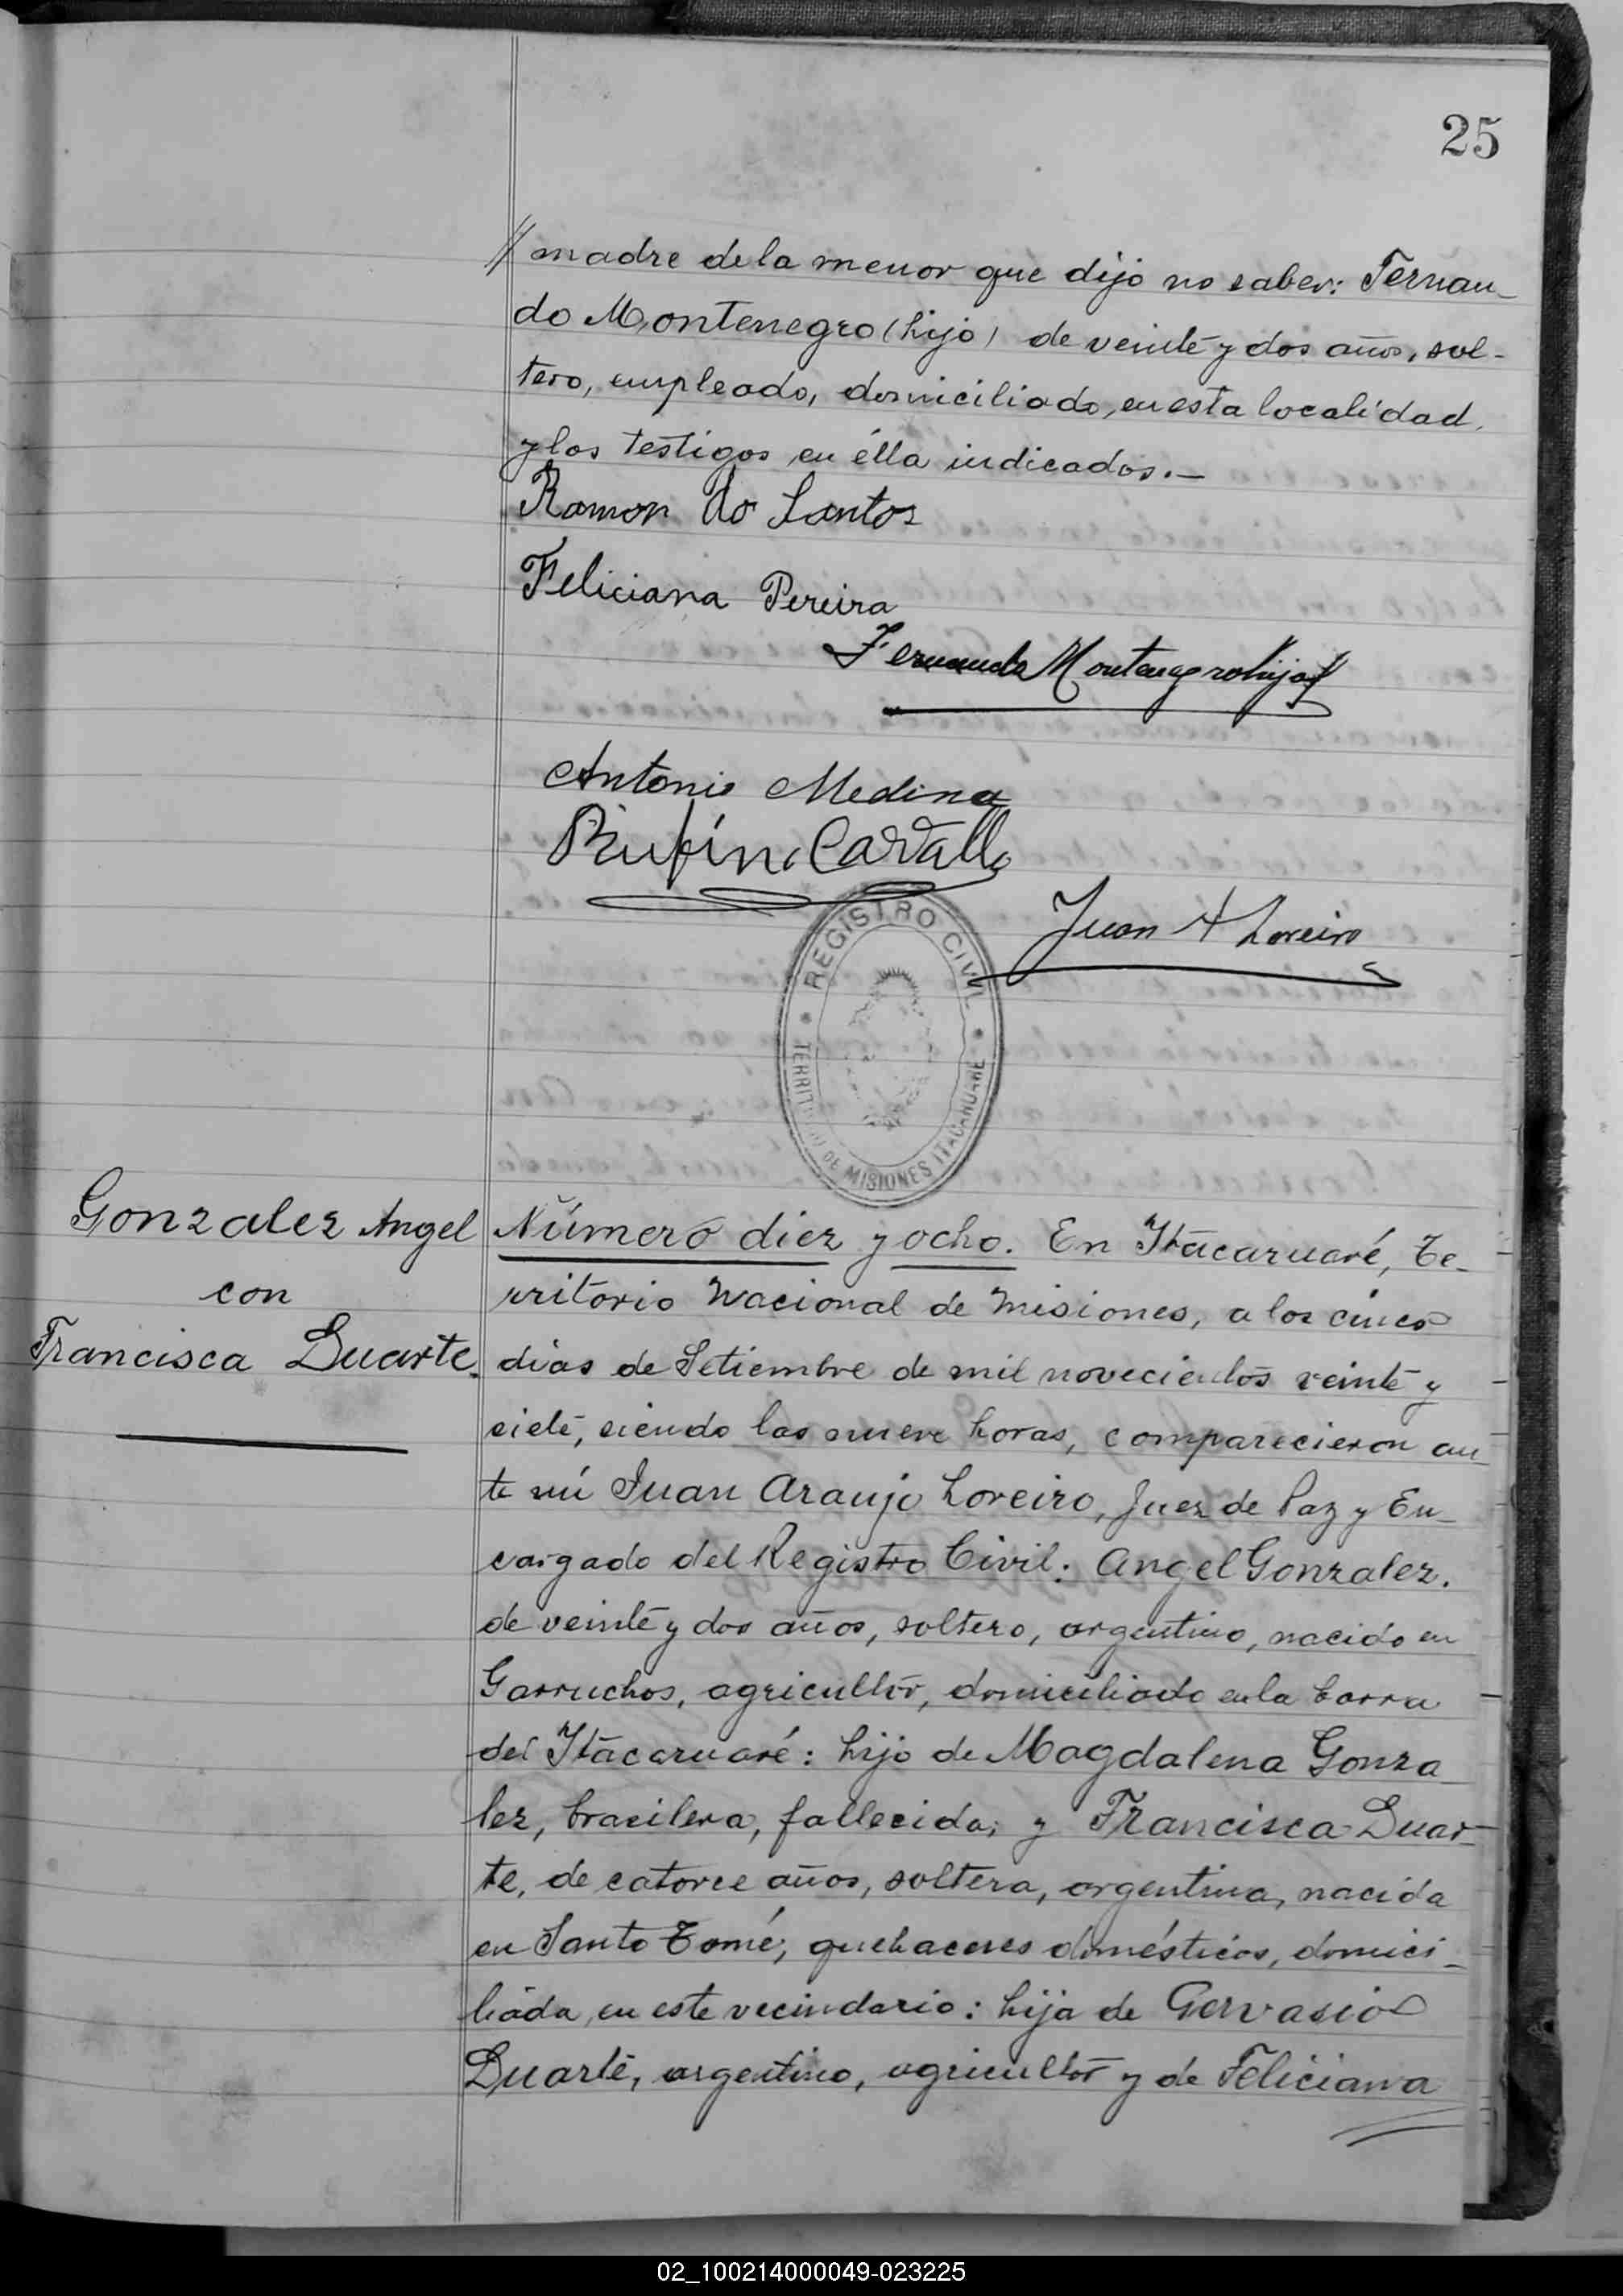 25
// madre dela menor que dijo no saber: Fernan-
do Montenegro (hijo) de veinte y dos años, sol-
tero, empleado, domiciliado, en esta localidad,
y los testigos en élla indicados.—
Ramon do Santos
Feliciana Pereira
Fernando Montenegro hijo
Antonio Medina
Rufino Carvallo
Juan A Loreiro
REGISTRO CIVIL
TERRITORIO DE MISIONES ITACARUARE
Gonzalez Angel
con
Francisca Duarte.
Número diez y ocho. En Itacaruaré, Te-
rritorio Nacional de Misiones, a los cinco
dias de Setiembre de mil novecientos veinte y
siete, siendo las nueve horas, comparecieron an-
te mi Juan Araujo Loreiro, Juez de Paz y En-
cargado del Registro Civil: Angel Gonzalez.
de veinte y dos años, soltero, argentino, nacido en
Garruchos, agricultor, domiciliado en la barra
del Itacaruaré: hijo de Magdalena Gonza-
lez, brasilera, fallecida; y Francisca Duar-
te, de catorce años, soltera, argentina, nacida
en Santo Tomé, quehaceres domésticos, domici-
liada en este vecindario: hija de Gervasio
Duarte, argentino, agricultor y de Feliciana
02_100214000049-023225